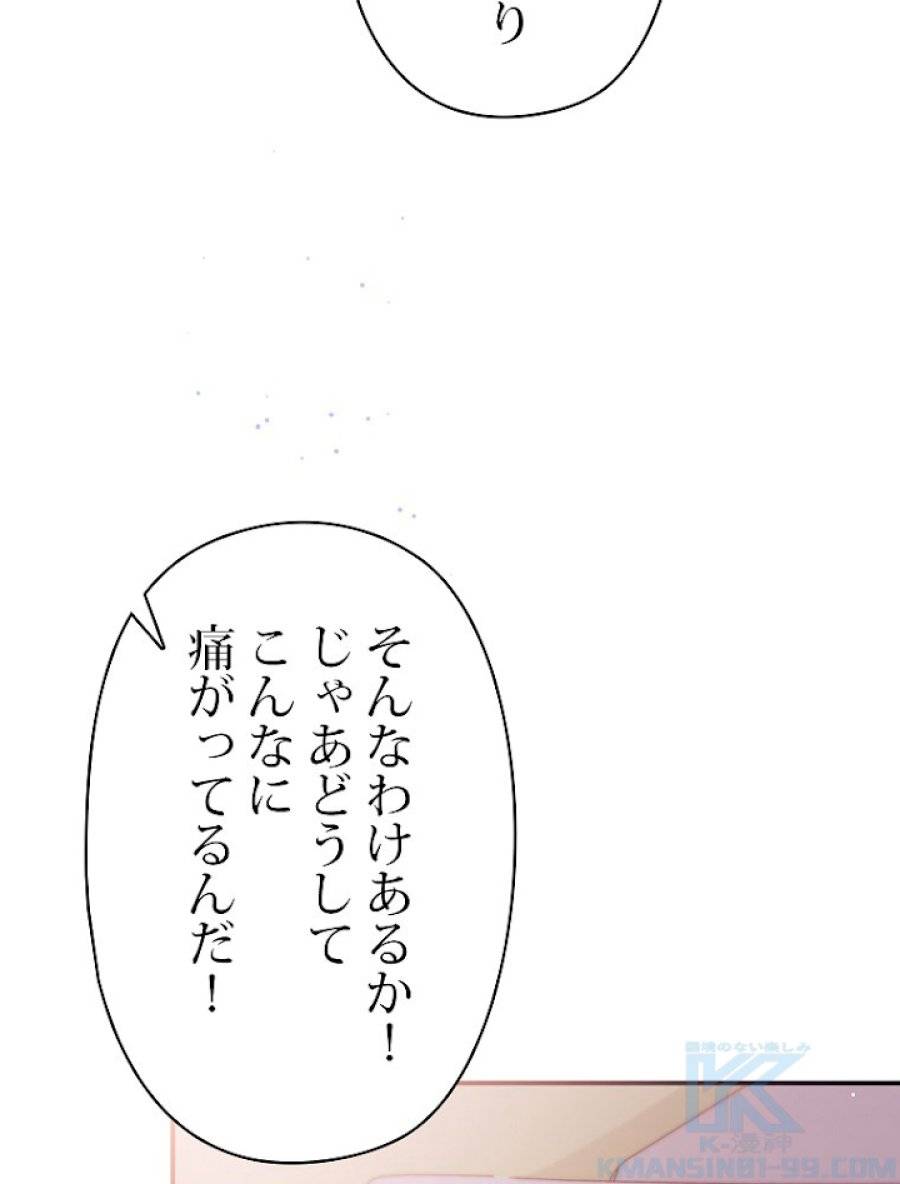 り
そんなわけあるか！
じゃあどうして
こんなに
痛がってるんだ！
K-漫神
KMANSIN01-99.COM